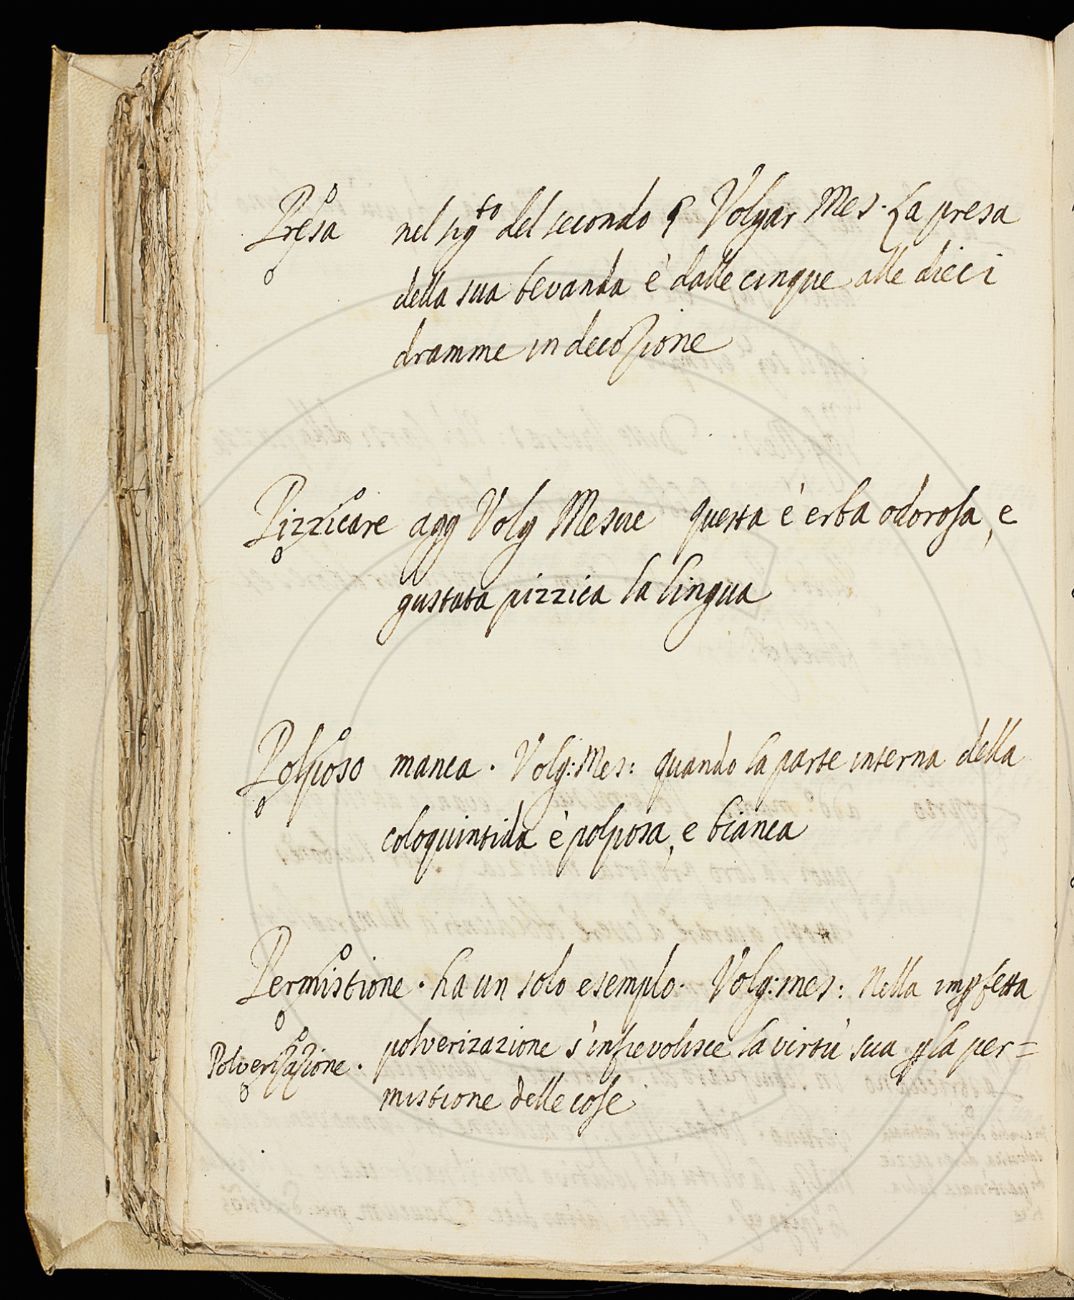 Presa nel sig.to del secondo § Volgar Mes. La presa
della sua bevanda è dalle cinque alle dieci
dramme in decozione
Pizzicare agg Volg Mesue questa è erba odorosa, e
gustata pizzica la lingua
Polposo manca. Volg: Mes: quando la parte interna della
coloquintida è polposa, e bianca
Permistione. ha un solo esempio. Volg: mes: Nella imꝑfetta
Polverizazione. polverizazione s'infievolisce la virtù sua ꝑ la per=
mistione delle cose